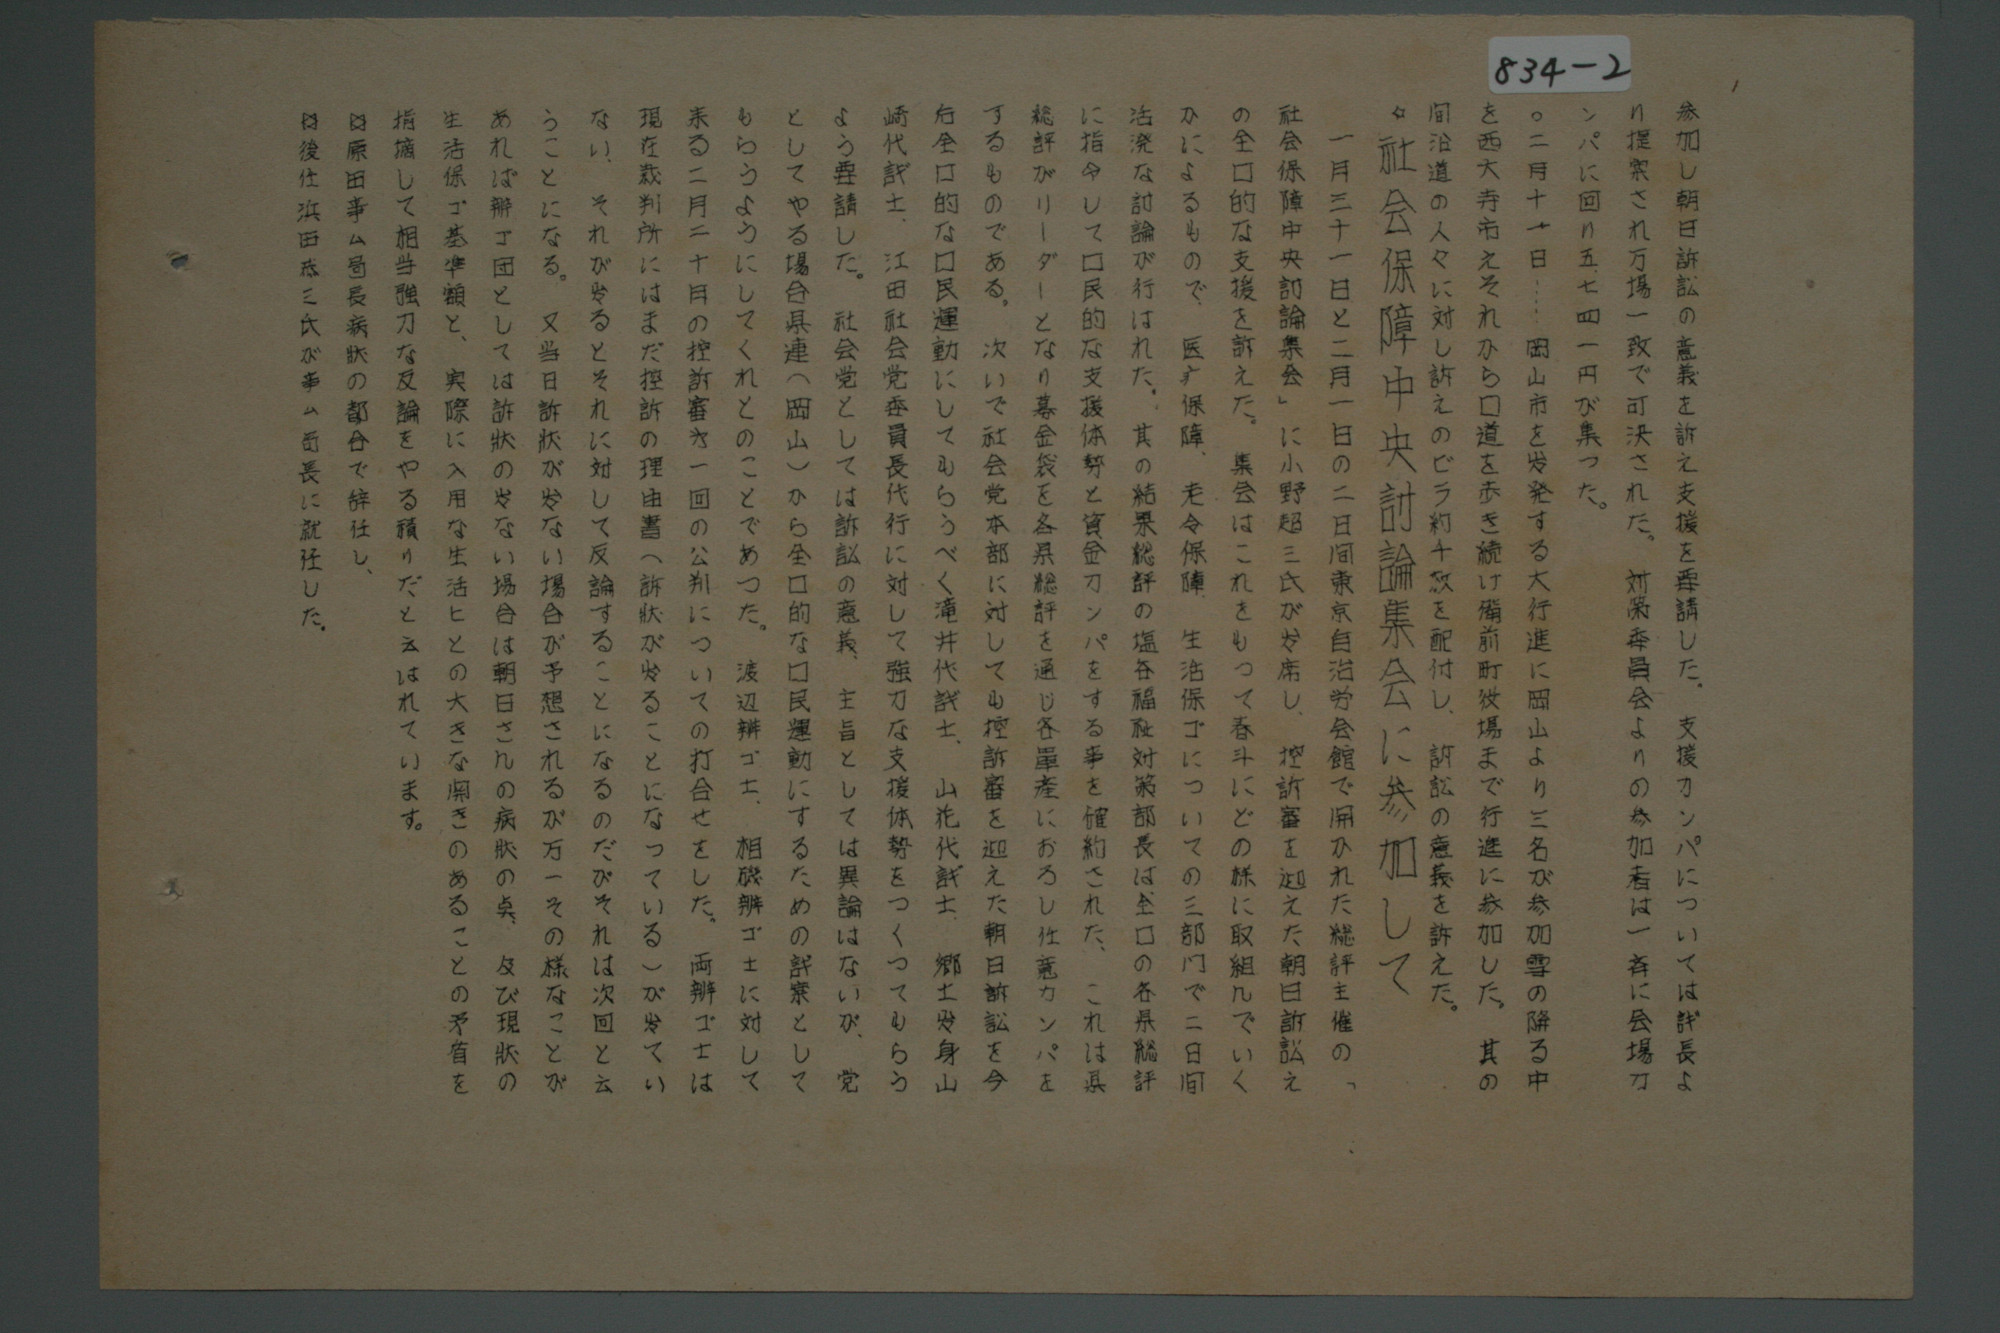 834-2
参加し朝日訴訟の意義を訴え支援を要請した。支援カンパについては議長よ
り提案され万場一致で可決された。対策委員会よりの参加者は一斉に会場カ
ンパに回り五、七四一円が集った。
○二月十一日……岡山市を出発する大行進に岡山より三名が参加雪の降る中
を西大寺市えそれから口道を歩き続け備前町役場まで行進に参加した。其の
間沿道の人々に対し訴えのビラ約千枚を配付し、訴訟の意義を訴えた。
々社会保障中央討論集会に参加して
一月三十一日と二月一日の二日间東京自治労会館で開かれた総評主催の「
社会保障中央討論集会」に小野超三氏が出席し、控訴審を迎えた朝日訴訟え
の全口的な支援を訴えた。集会はこれをもつて春斗にどの様に取組んでいく
かによるもので、医疒保障、老令保障、生活保ゴについての三部门で二日间
活溌な討論が行はれた。其の結果総評の塩谷福祉対策部長は全口の各県総評
に指令して口民的な支援体勢と資金カンパをする事を確約された、これは県
総評がリーダーとなり募金袋を各県総評を通じ各単産におろし任意カンパを
するものである。次いで社会党本部に対しても控訴審を迎えた朝日訴訟を今
后全口的な口民運動にしてもらうべく滝井代議士、山花代議士、郷土出身山
崎代議士、江田社会党委員長代行に対して強力な支援体勢をつくつてもらう
よう要請した。社会党としては訴訟の意義、主旨としては異論はないが、党
としてやる場合県連(岡山)から全口的な口民運動にするための議案として
もらうようにしてくれとのことであつた。渡辺辨ゴ士、相磯辨ゴ士に対して
来る二月二十日の控訴審才一回の公判についての打合せをした。両辨ゴ士は
現在裁判所にはまだ控訴の理由書(訴状が出ることになつている)が出てい
ない、それが出るとそれに対して反論することになるのだがそれは次回と云
うことになる。又当日訴状が出ない場合が予想されるが万一その様なことが
あれば辨ゴ団としては訴状の出ない場合は朝日さんの病状の点、及び現状の
生活保ゴ基準額と、実際に入用な生活ヒとの大きな開きのあることの矛盾を
指摘して相当強力な反論をやる積りだと云はれています。
原田事ム局長病状の都合で辞任し、
後任浜田恭三氏が事ム局長に就任した。